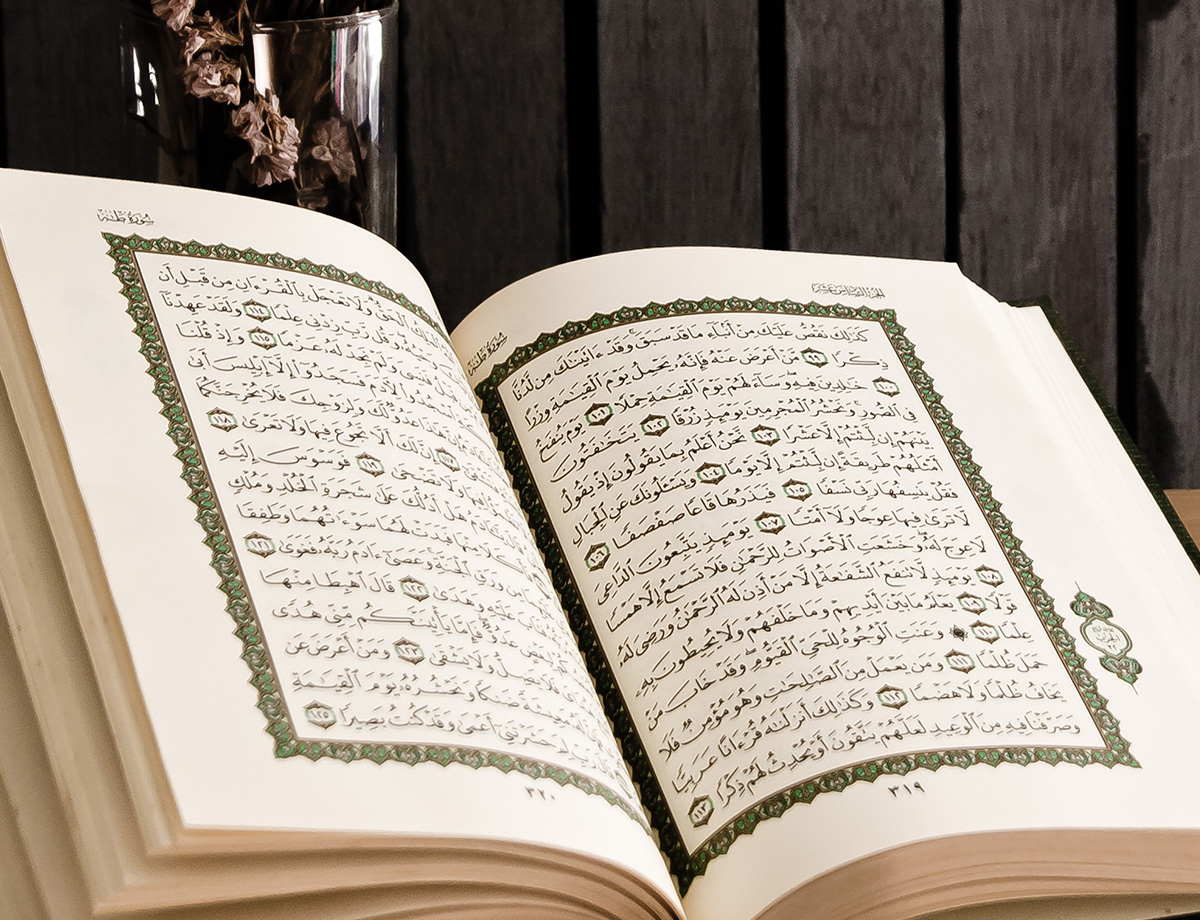 الجزء السادس عشر
سُورَةُ طه
كَذَٰلِكَ نَقُصُّ عَلَيْكَ مِنْ أَنۢبَآءِ مَا قَدْ سَبَقَ ۚ وَقَدْ ءَاتَيْنَٰكَ مِن لَّدُنَّا
ذِكْرًا ٩٩ مَّنْ أَعْرَضَ عَنْهُ فَإِنَّهُۥ يَحْمِلُ يَوْمَ ٱلْقِيَٰمَةِ وِزْرًا
١٠٠ خَٰلِدِينَ فِيهِ ۖ وَسَآءَ لَهُمْ يَوْمَ ٱلْقِيَٰمَةِ حِمْلًا ١٠١ يَوْمَ يُنفَخُ
فِى ٱلصُّورِ ۚ وَنَحْشُرُ ٱلْمُجْرِمِينَ يَوْمَئِذٍ زُرْقًا ١٠٢ يَتَخَٰفَتُونَ
بَيْنَهُمْ إِن لَّبِثْتُمْ إِلَّا عَشْرًا ١٠٣ نَّحْنُ أَعْلَمُ بِمَا يَقُولُونَ إِذْ يَقُولُ
أَمْثَلُهُمْ طَرِيقَةً إِن لَّبِثْتُمْ إِلَّا يَوْمًا ١٠٤ وَيَسْـَٔلُونَكَ عَنِ ٱلْجِبَالِ
فَقُلْ يَنسِفُهَا رَبِّى نَسْفًا ١٠٥ فَيَذَرُهَا قَاعًا صَفْصَفًا ١٠٦
لَّا تَرَىٰ فِيهَا عِوَجًا وَلَآ أَمْتًا ١٠٧ يَوْمَئِذٍ يَتَّبِعُونَ ٱلدَّاعِىَ
لَا عِوَجَ لَهُۥ ۖ وَخَشَعَتِ ٱلْأَصْوَاتُ لِلرَّحْمَٰنِ فَلَا تَسْمَعُ إِلَّا هَمْسًا
١٠٨ يَوْمَئِذٍ لَّا تَنفَعُ ٱلشَّفَٰعَةُ إِلَّا مَنْ أَذِنَ لَهُ ٱلرَّحْمَٰنُ وَرَضِىَ لَهُۥ
قَوْلًا ١٠٩ يَعْلَمُ مَا بَيْنَ أَيْدِيهِمْ وَمَا خَلْفَهُمْ وَلَا يُحِيطُونَ بِهِۦ
عِلْمًا ١١٠ وَعَنَتِ ٱلْوُجُوهُ لِلْحَىِّ ٱلْقَيُّومِ ۖ وَقَدْ خَابَ مَنْ
حَمَلَ ظُلْمًا ١١١ وَمَن يَعْمَلْ مِنَ ٱلصَّٰلِحَٰتِ وَهُوَ مُؤْمِنٌ فَلَا
يَخَافُ ظُلْمًا وَلَا هَضْمًا ١١٢ وَكَذَٰلِكَ أَنزَلْنَٰهُ قُرْءَانًا عَرَبِيًّا
وَصَرَّفْنَا فِيهِ مِنَ ٱلْوَعِيدِ لَعَلَّهُمْ يَتَّقُونَ أَوْ يُحْدِثُ لَهُمْ ذِكْرًا ١١٣
٣١٩
سُورَةُ طه
ٱلْحَقُّ ۗ وَلَا تَعْجَلْ بِٱلْقُرْءَانِ مِن قَبْلِ أَن
وَقُل رَّبِّ زِدْنِى عِلْمًا ١١٤ وَلَقَدْ عَهِدْنَآ
فَنَسِىَ وَلَمْ نَجِدْ لَهُۥ عَزْمًا ١١٥ وَإِذْ قُلْنَا
ٱسْجُدُوا۟ لِـَٔادَمَ فَسَجَدُوٓا۟ إِلَّآ إِبْلِيسَ أَبَىٰ
إِنَّ هَٰذَا عَدُوٌّ لَّكَ وَلِزَوْجِكَ فَلَا يُخْرِجَنَّكُمَا
إِنَّ لَكَ أَلَّا تَجُوعَ فِيهَا وَلَا تَعْرَىٰ ١١٨
فِيهَا وَلَا تَضْحَىٰ ١١٩ فَوَسْوَسَ إِلَيْهِ
يَٰٓـَٔادَمُ هَلْ أَدُلُّكَ عَلَىٰ شَجَرَةِ ٱلْخُلْدِ وَمُلْكٍ
مِنْهَا فَبَدَتْ لَهُمَا سَوْءَٰتُهُمَا وَطَفِقَا
مِن وَرَقِ ٱلْجَنَّةِ ۚ وَعَصَىٰٓ ءَادَمُ رَبَّهُۥ فَغَوَىٰ ١٢١
عَلَيْهِ وَهَدَىٰ ١٢٢ قَالَ ٱهْبِطَا مِنْهَا
لِبَعْضٍ عَدُوٌّ ۖ فَإِمَّا يَأْتِيَنَّكُم مِّنِّى هُدًى
فَلَا يَضِلُّ وَلَا يَشْقَىٰ ١٢٣ وَمَنْ أَعْرَضَ عَن
لَهُۥ مَعِيشَةً ضَنكًا وَنَحْشُرُهُۥ يَوْمَ ٱلْقِيَٰمَةِ
رَبِّ لِمَ حَشَرْتَنِىٓ أَعْمَىٰ وَقَدْ كُنتُ بَصِيرًا ١٢٥
٣٢٠